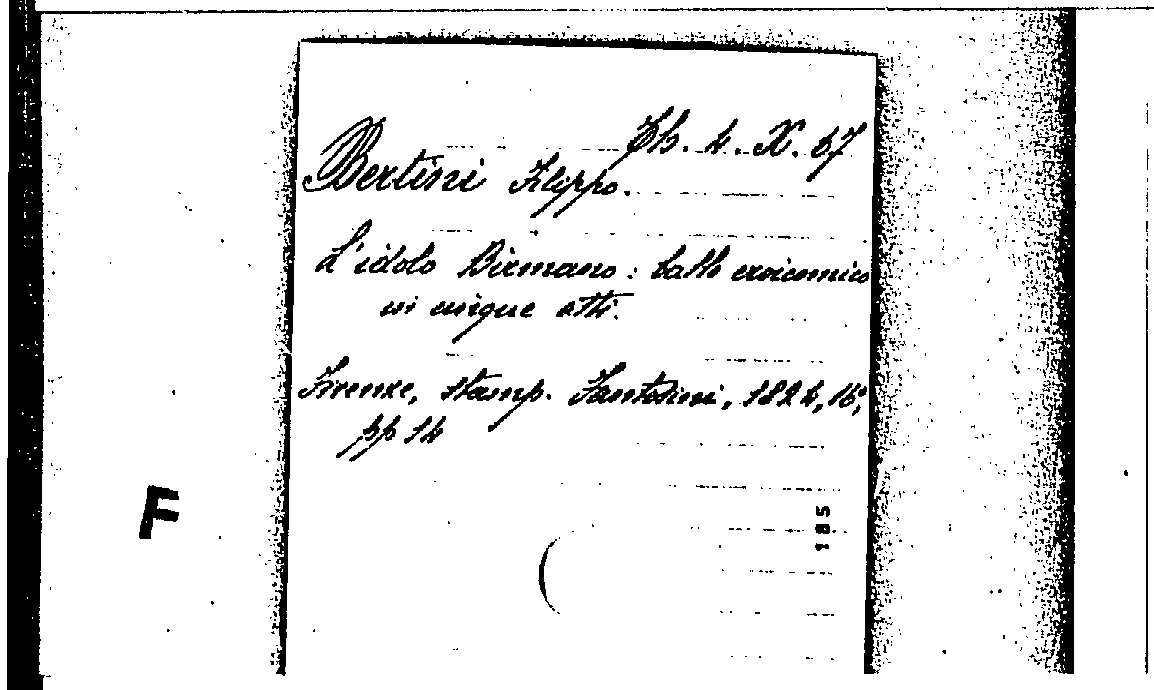 Th. 4. X. 67
Bertini Filippo.
L'idolo Birmano: ballo eroicomico
in cinque atti.
Firenze, stamp. Fantosini, 1824, 16°,
pp 14
F
185